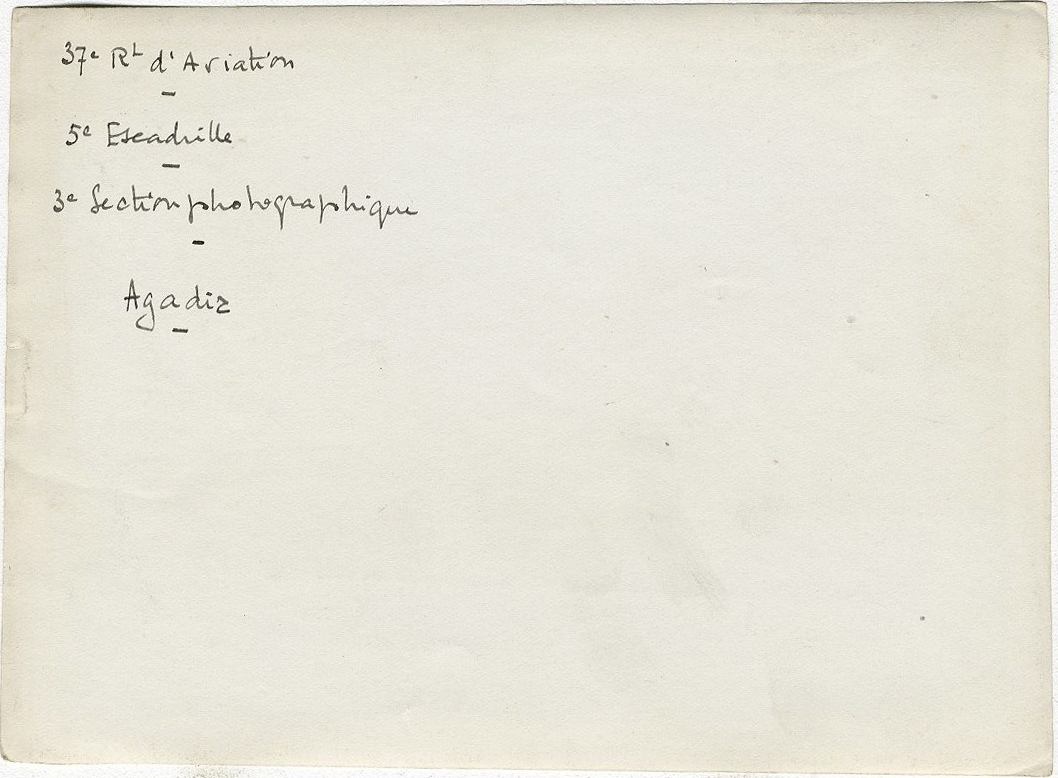 37e Rt d'Aviation
-
5e Escadrille
-
3e Section photographique
-
Agadiz
-